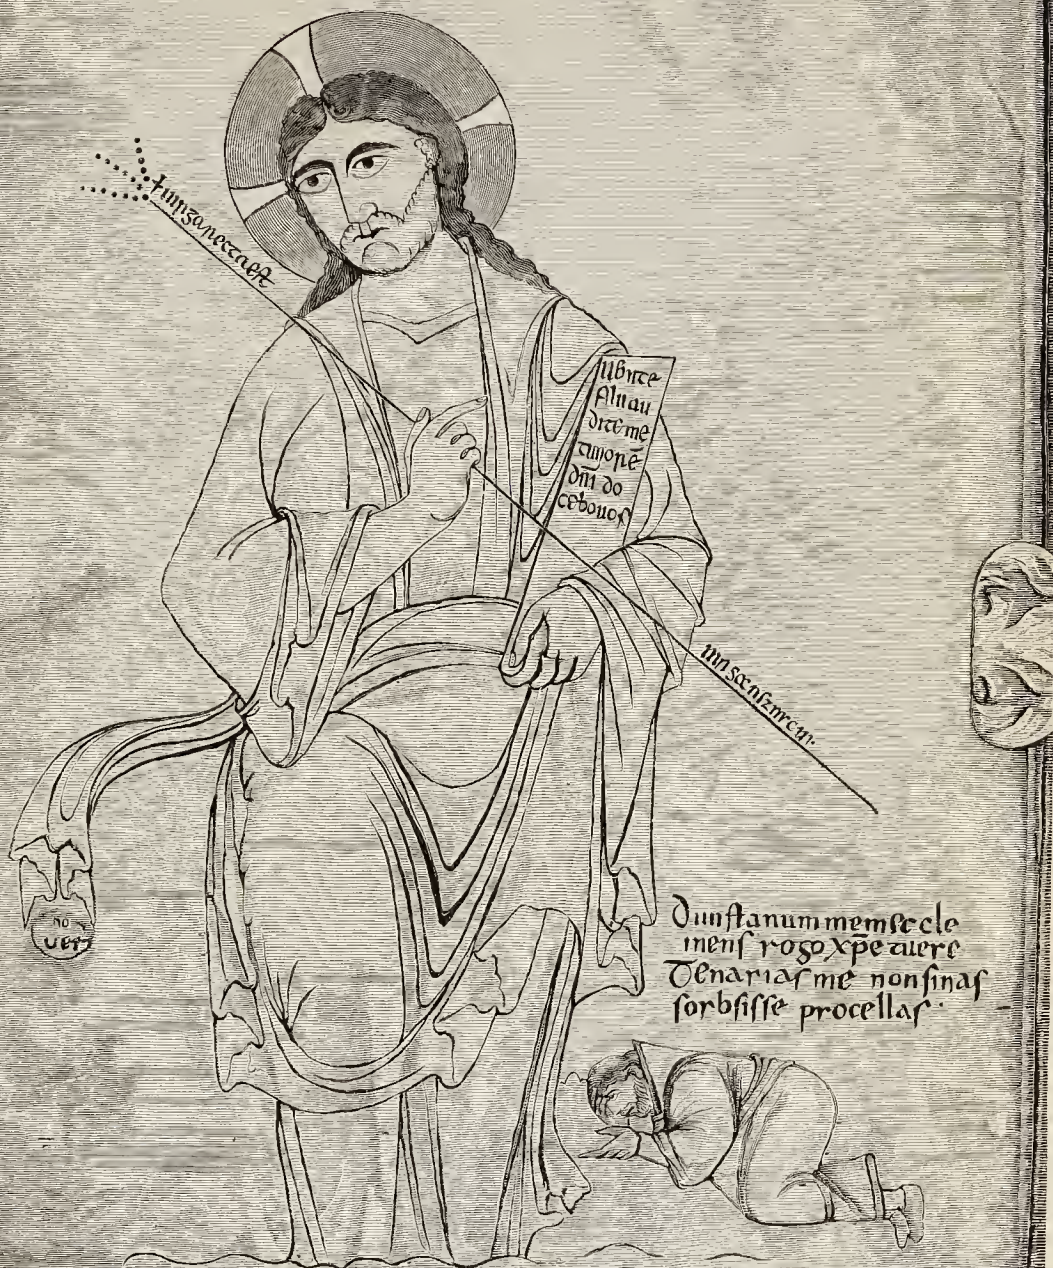 +uirga recta eſt
filii au
dite me
timorē
dn̄i do
cebo uoſ
Dunſtanum memet cle
menſ rogo xp̄e tuere
Tenariaſ me non ſinaſ
ſorbſiſſe procellaſ·